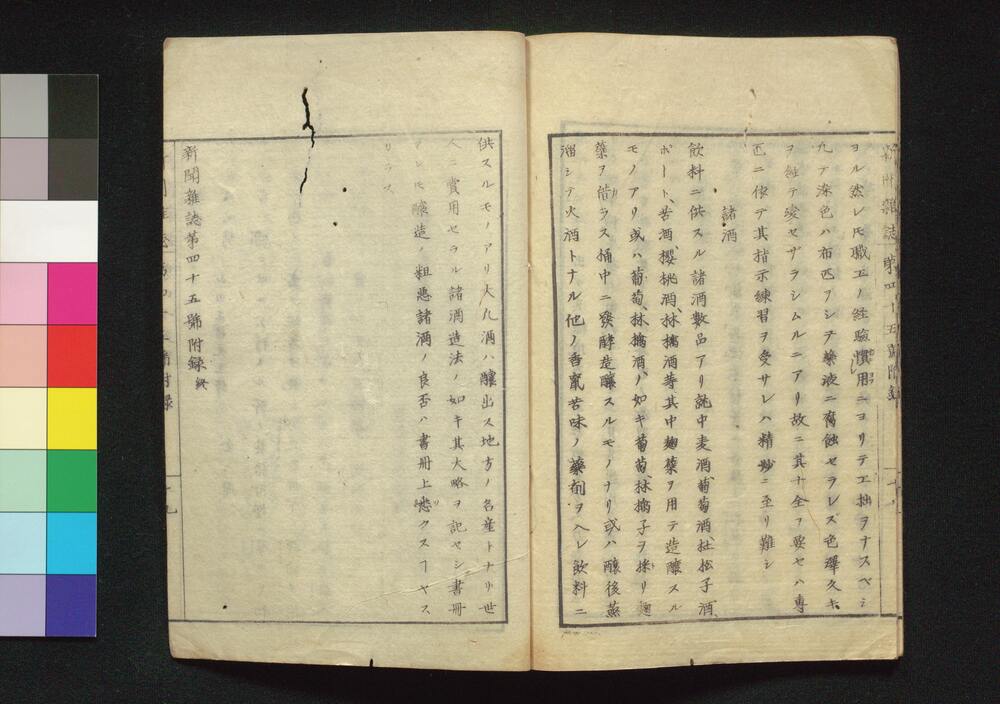 新聞雑誌第四十五號附録
ヨル然レ𪜈職工ノ経驗慣用ニヨリテ工拙ヲナスベシ
凡テ染色ハ布匹ヲシテ藥液ニ腐蝕セラレズ色澤久キ
ヲ経テ変セザラシムルニアリ故ニ其十全ヲ要セハ專
匠ニ依テ其指示練習ヲ受サレハ精妙ニ至リ難シ
諸酒
飲料ニ供スル諸酒數品アリ就中麦酒、葡萄酒、杜松子酒、
ポート、苦酒、櫻桃酒、林檎酒等其中麹蘖ヲ用テ造醸スル
モノアリ或ハ葡萄、林檎酒ノ如キ葡萄、林檎子ヲ採リ麹
蘖ヲ借ラス桶中ニ發酵造釀スルモノナリ或ハ醸後蒸
溜シテ火酒トナル他ノ香竄苦味ノ藥剤ヲ入レ飲料ニ
供スルモノアリ大凡酒ハ釀出ス地方ノ名産トナリ世
人ニ賞用セラル諸酒造法ノ如キ其大略ヲ記セシ書冊
アレ𪜈醸造ノ粗悪諸酒ノ良否ハ書冊上悉クスヿヤス
リラス
新聞雑誌第四十五號附録終